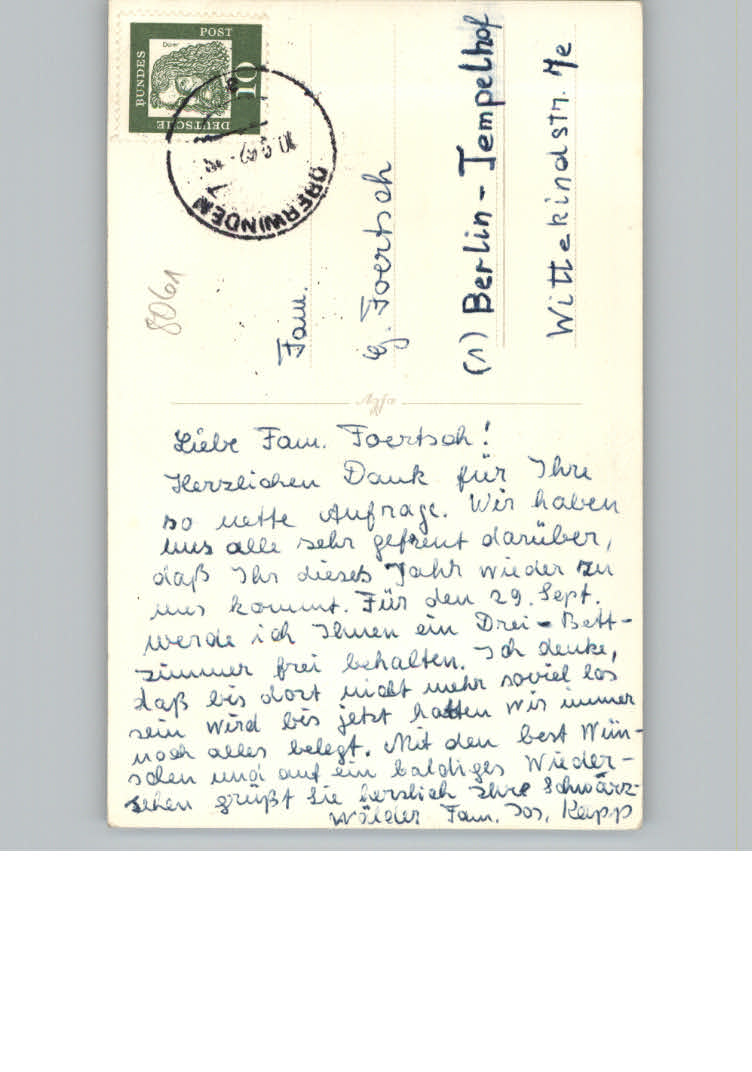 DEUTSCHE
BUNDES
POST
Dürer
10
OBERWINDEN
8061
Fam.
Foertsch
(1) Berlin - Tempelhof
Wittekindstr. 7e
Agfa
Liebe Fam. Foertsch!
Herzlichen Dank für Ihre
so nette Anfrage. Wir haben
uns alle sehr gefreut darüber,
daß Ihr dieses Jahr wieder zu
uns kommt. Für den 29. Sept.
werde ich Ihnen ein Drei-Bett-
zimmer frei behalten. Ich denke,
daß bis dort nicht mehr soviel los
sein wird bis jetzt hatten wir immer
noch alles belegt. Mit den best Wün-
schen und auf ein baldiges Wieder-
sehen grüßt Sie herzlich Ihre Schwarz-
wälder Fam. Jos. Rapp